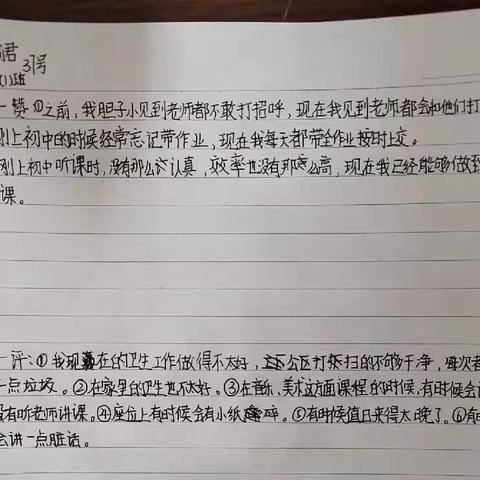 君
31号
(1)班
一赞①之前,我胆子小见到老师都不敢打招呼,现在我见到老师都会和他们打
刚上初中的时候经常忘记带作业,现在我每天都带全作业按时上交。
刚上初中听课时,没有那么认真,效率也没有那么高,现在我已经能够做到
课。
一评:①我现在的卫生工作做得不太好,公区打扫的不够干净,每次都
一点垃圾。②在家里的卫生也不太好。③在音乐、美术这方面课程的时候,有时候会
没有听老师讲课。④座位上有时候会有小纸碎。⑤有时候值日来得太晚了。⑥有
会讲一点脏话。